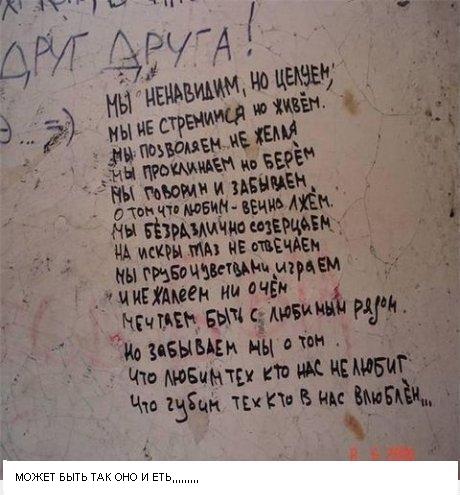 ДРУГ ДРУГА!
МЫ НЕНАВИДИМ, НО ЦЕЛУЕМ,
МЫ НЕ СТРЕМИМСЯ НО ЖИВЁМ.
МЫ ПОЗВОЛЯЕМ НЕ ЖЕЛАЯ
МЫ ПРОКЛИНАЕМ НО БЕРЁМ
МЫ ГОВОРИМ И ЗАБЫВАЕМ
О ТОМ ЧТО ЛЮБИМ - ВЕЧНО ЛЖЁМ.
МЫ БЕЗРАЗЛИЧНО СОЗЕРЦАЕМ
НА ИСКРЫ ГЛАЗ НЕ ОТВЕЧАЕМ
МЫ ГРУБО ЧУВСТВАМИ ИГРАЕМ
И НЕ ЖАЛЕЕМ НИ О ЧЁМ
МЕЧТАЕМ БЫТЬ С ЛЮБИМЫМ РЯДОМ
НО ЗАБЫВАЕМ МЫ О ТОМ
ЧТО ЛЮБИМ ТЕХ КТО НАС НЕ ЛЮБИТ
ЧТО ГУБИМ ТЕХ КТО В НАС ВЛЮБЛЁН...
МОЖЕТ БЫТЬ ТАК ОНО И ЕТЬ,,,,,,,,,